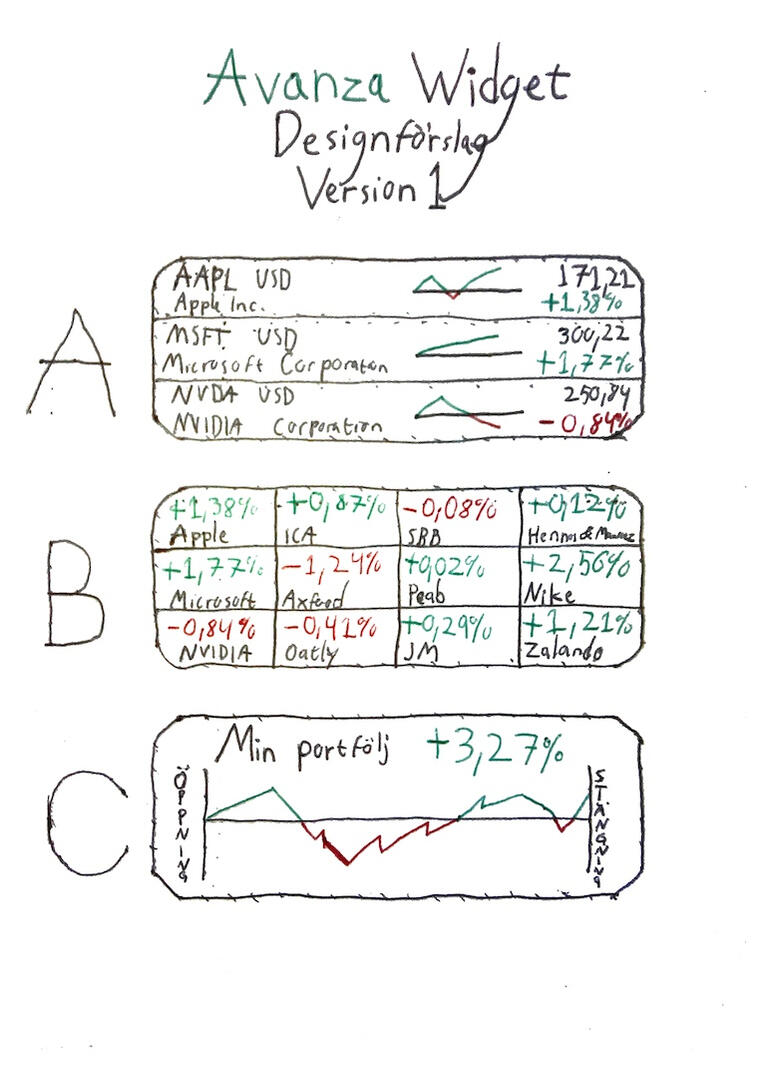 Avanza Widget
Designförslag
Version 1
A
AAPL USD 171,21
Apple Inc. +1,38%
MSFT USD 300,22
Microsoft Corporaton +1,77%
NVDA USD 250,84
NVIDIA Corporation -0,84%
B
+1,38% +0,87% -0,08% +0,12%
Apple ICA SBB Hennes &
+1,77% -1,24% +0,02% +2,56%
Microsoft Axfood Peab Nike
-0,84% -0,41% +0,29% +1,21%
NVIDIA Oatly JM Zalando
C
Min portfölj +3,27%
ÖPPNING
STÄNGNING